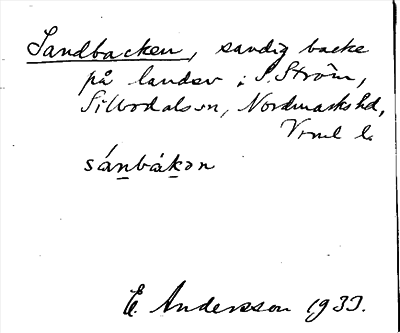 Sandbacken, sandig backe
på landsv. i S. Ström,
Silbodals sn, Nordmarks hd,
Vrml l.
sánbákən
E. Andersson 1933.